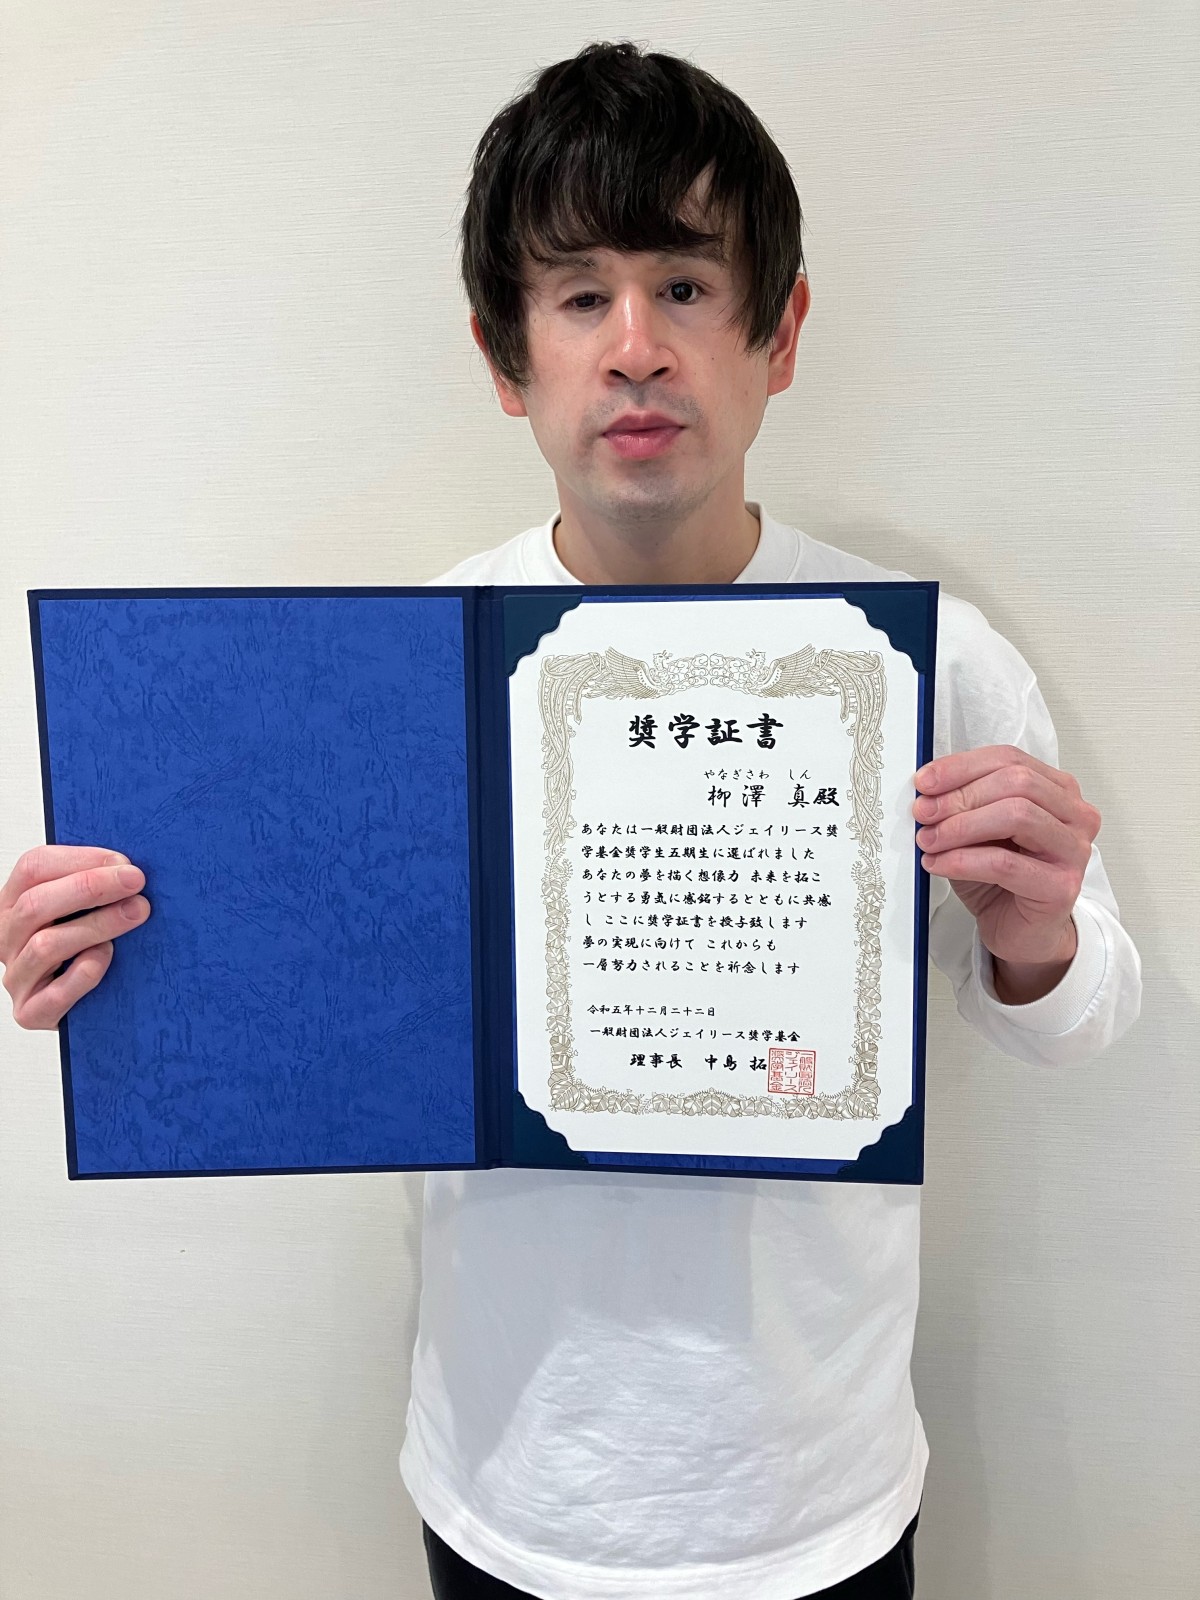 奨学証書
やなぎさわ しん
柳澤 真殿
あなたは一般財団法人ジェイリース奨
学基金奨学生五期生に選ばれました
あなたの夢を描く想像力 未来を拓こ
うとする勇気に感銘するとともに共感
し ここに奨学証書を授与致します
夢の実現に向けて これからも
一層努力されることを祈念します
令和五年十二月二十二日
一般財団法人ジェイリース奨学基金
理事長 中島 拓
一般財団法人
ジェイリース
奨学基金